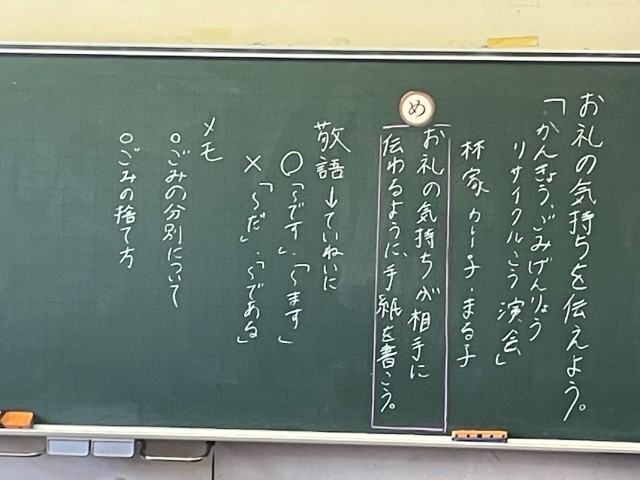 お礼の気持ちを伝えよう。
「かんきょう、ごみげんりょう
リサイクルこう演会」
林家カレー子・まる子
め
お礼の気持ちが相手に
伝わるように、手紙を書こう。
敬語→ていねいに
○「〜です」、「〜ます」
×「〜だ」、「〜である」
メモ
○ごみの分別について
○ごみの捨て方